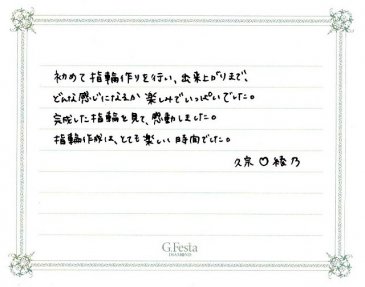 初めて指輪作りを行い、出来上がりまで、
どんな感じになるか楽しみでいっぱいでした。
完成した指輪を見て、感動しました。
指輪作成は、とても楽しい時間でした。
久宗♡綾乃
G.Festa
DIAMOND